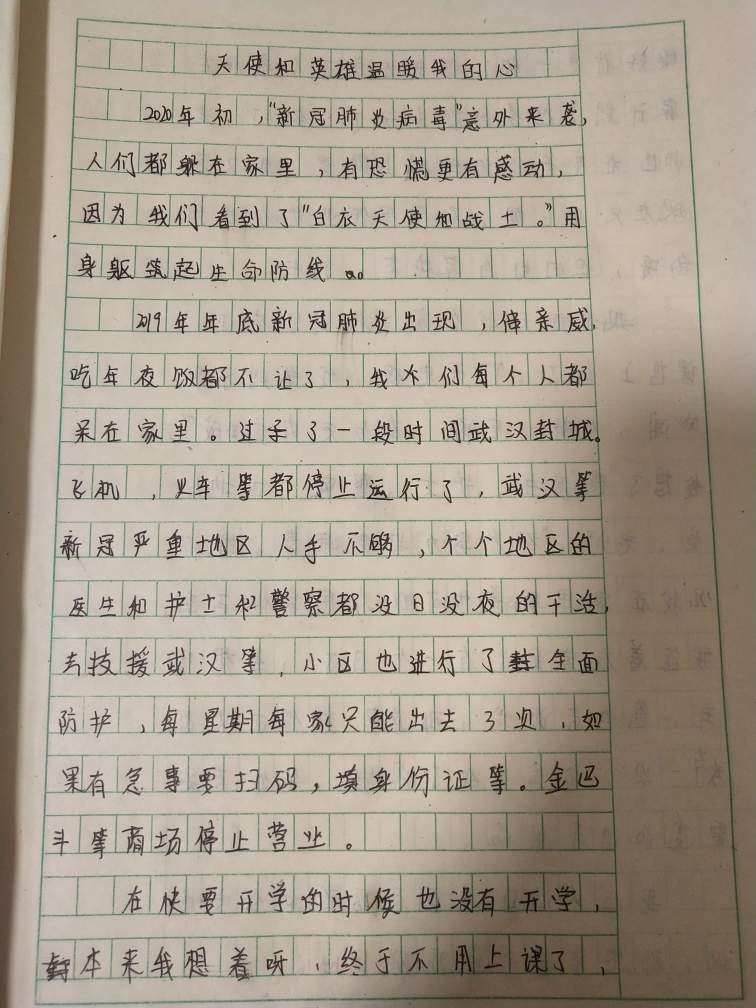 天使和英雄温暖我的心
2020年初，"新冠肺炎病毒"意外来袭，
人们都躲在家里，有恐慌更有感动，
因为我们看到了"白衣天使和战士。"用
身躯筑起生命防线。
2019年年底新冠肺炎出现，俫亲戚，
吃年夜饭都不让了，我们每个人都
呆在家里。过了一段时间武汉封城。
飞机，火车等都停止运行了，武汉等
新冠严重地区人手不够，个个地区的
医生和护士和警察都没日没夜的干活，
去技援武汉等，小区也进行了全面
防护，每星期每家只能出去3次，如
果有急事要扫码，填身份证等。金巴
斗等商场停止营业。
在快要开学的时候也没有开学，
本来我想着呀，终于不用上课了，